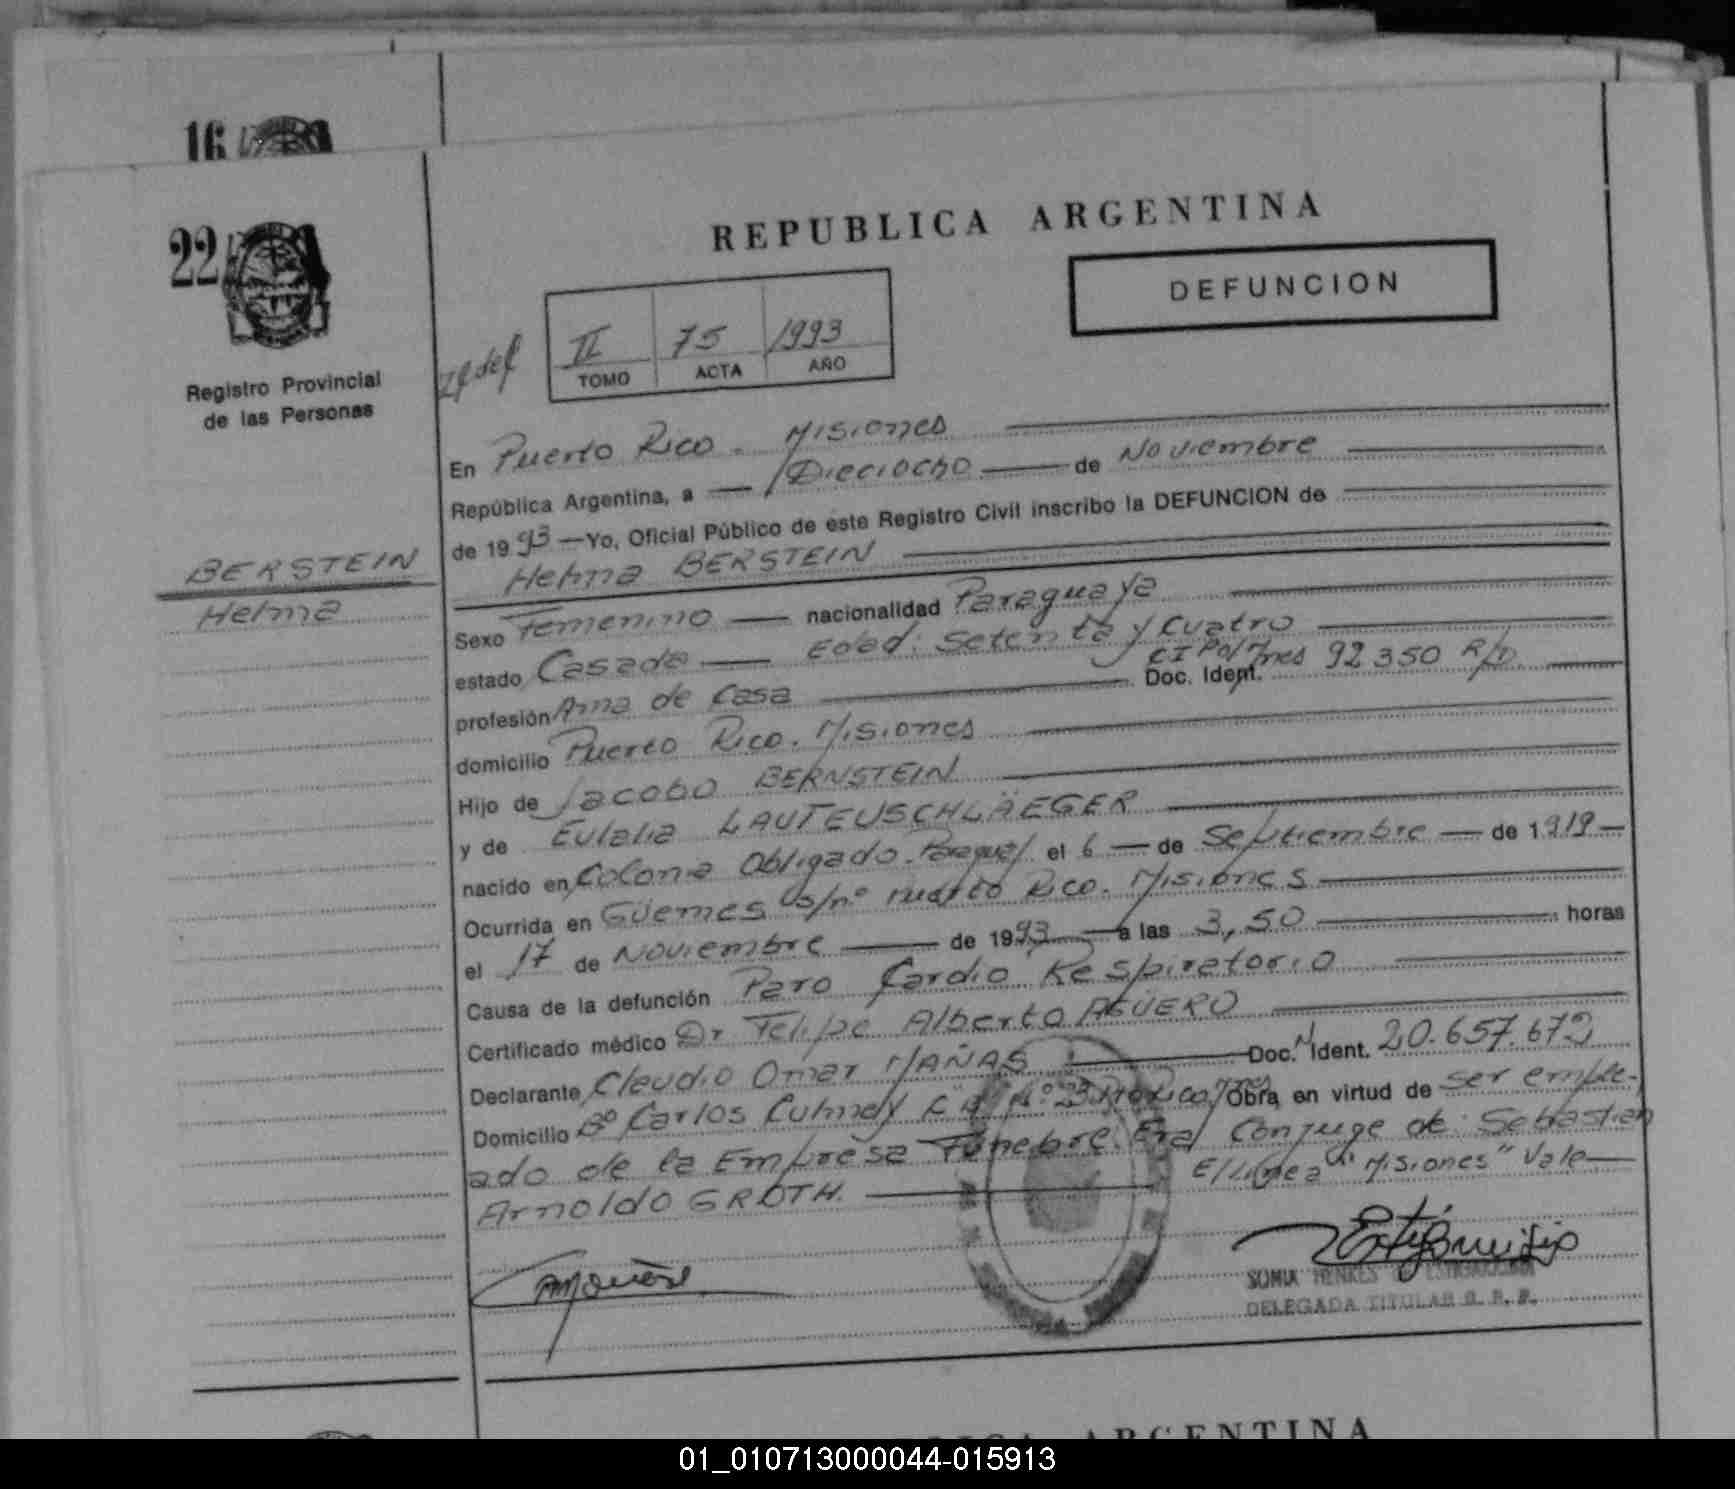 16
22
REPUBLICA ARGENTINA
DEFUNCION
II 75 1993
TOMO ACTA AÑO
Registro Provincial
de las Personas
BERSTEIN
Helma
En Puerto Rico. Misiones
República Argentina, a Dieciocho de Noviembre
de 1993 Yo, Oficial Público de este Registro Civil inscribo la DEFUNCION de
Helma BERSTEIN
Sexo Femenino nacionalidad Paraguaya
estado Casada Edad: Setenta y Cuatro
profesión Ama de Casa Doc. Ident. CI Pol Mnes 92350 R/D
domicilio Puerto Rico. Misiones
Hijo de Jacobo BERNSTEIN
y de Eulalia LAUTEUSCHLÄEGER
nacido en Colonia Obligado. Paraguay el 6 de Septiembre de 1919
Ocurrida en Güemes s/nº Puerto Rico. Misiones
el 17 de Noviembre de 1993 a las 3,50 horas
Causa de la defunción Paro Cardio Respiratorio
Certificado médico Dr Felipe Alberto AGÜERO
Declarante Claudio Omar MAÑAS Doc. Ident. 20.657.672
Domicilio Bº Carlos Culmey Pto Rico, Mnes Obra en virtud de ser emple-
ado de la Empresa Fúnebre. Era Conjuge de Sebastian
Arnoldo GROTH. E/Linea "Misiones" Vale
SONIA HENKES
DELEGADA TITULAR G. R. P.
ARGENTINA
01_010713000044-015913